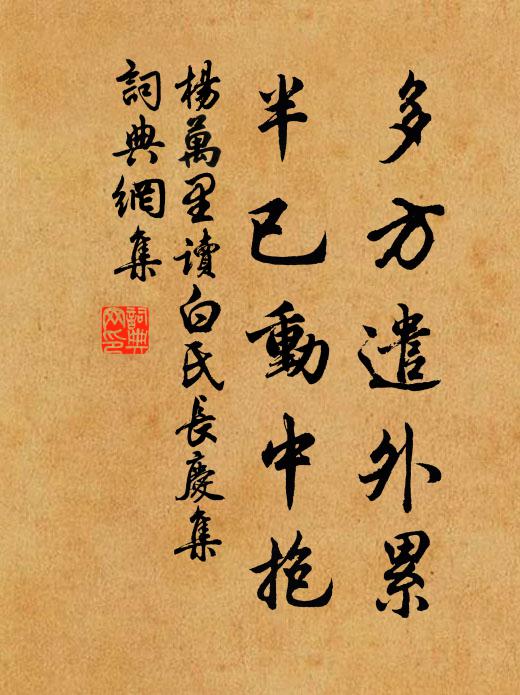 多方遣外累
半已動中抱
楊萬里讀白氏長慶集
詞典網集
詞典網印